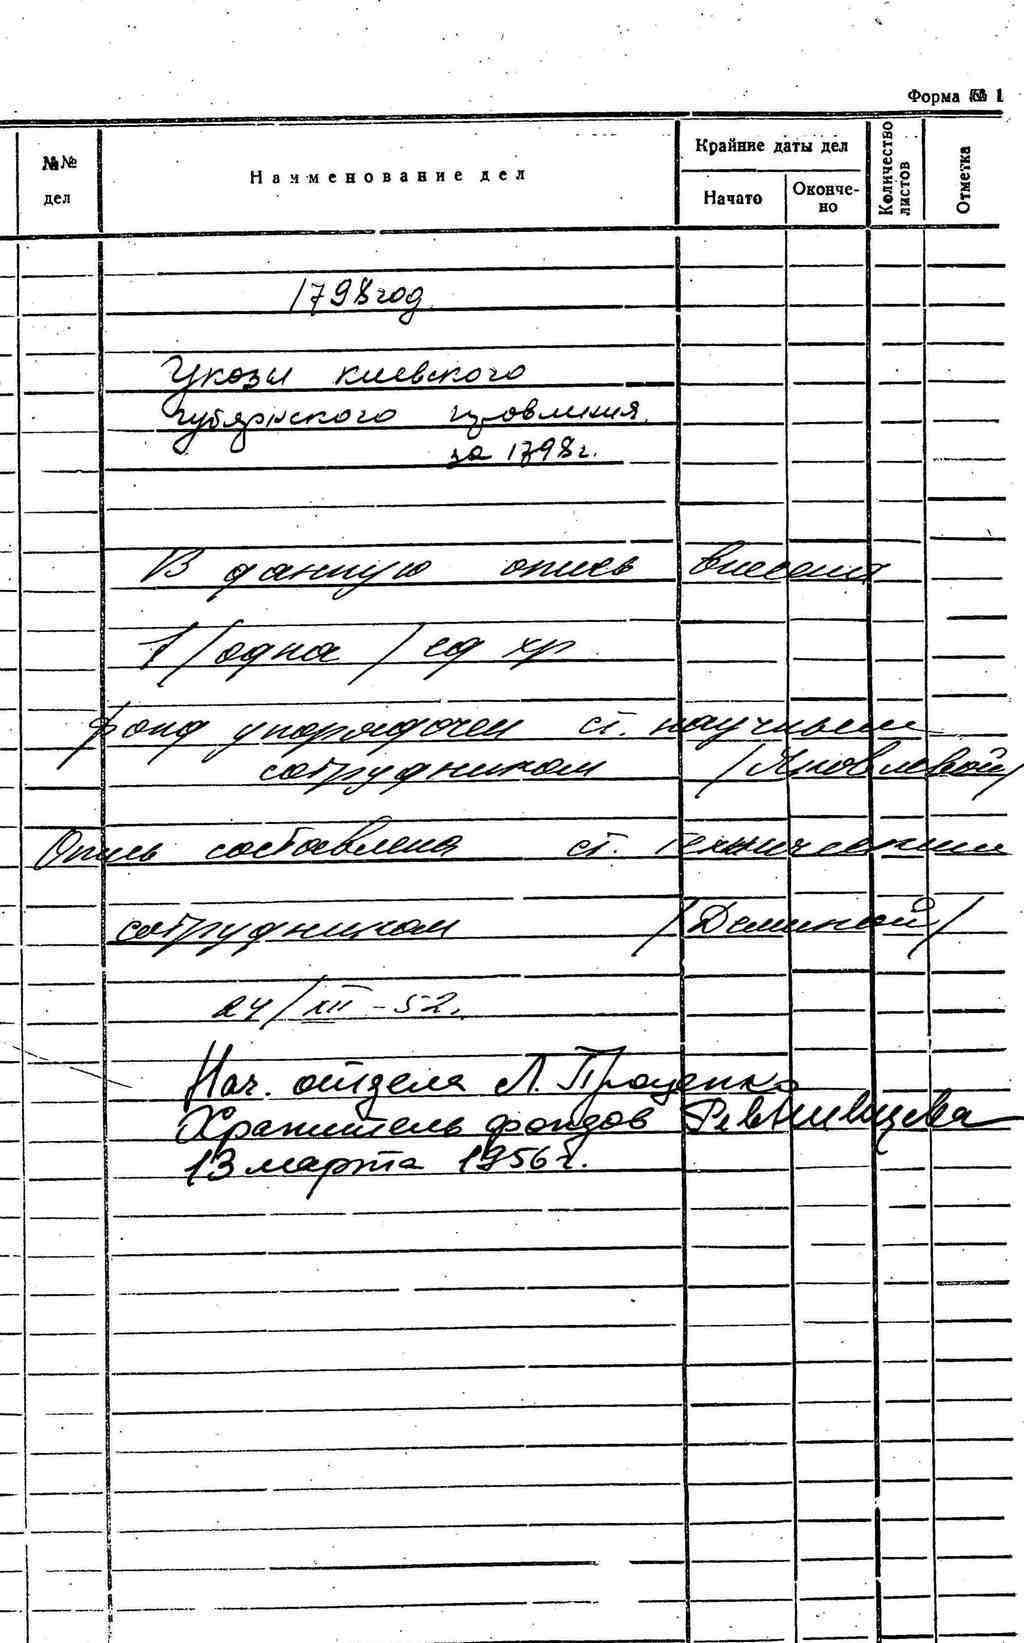 Форма № 1
№№ дел
Наименование дел
Крайние даты дел
Начато
Окончено
Количество листов
Отметка
1798 год.
Указы киевского
губернского правления
за 1798 г.
В данную опись внесена
1 /одна/ ед хр
фонд упорядочен ст. научным
сотрудником /Яковлевой/
Опись составлена ст. техническим
сотрудником /Деминой/
24/XII-52.
Нач. отдела Л. Проценко
Хранитель фондов
13 марта 1956 г.